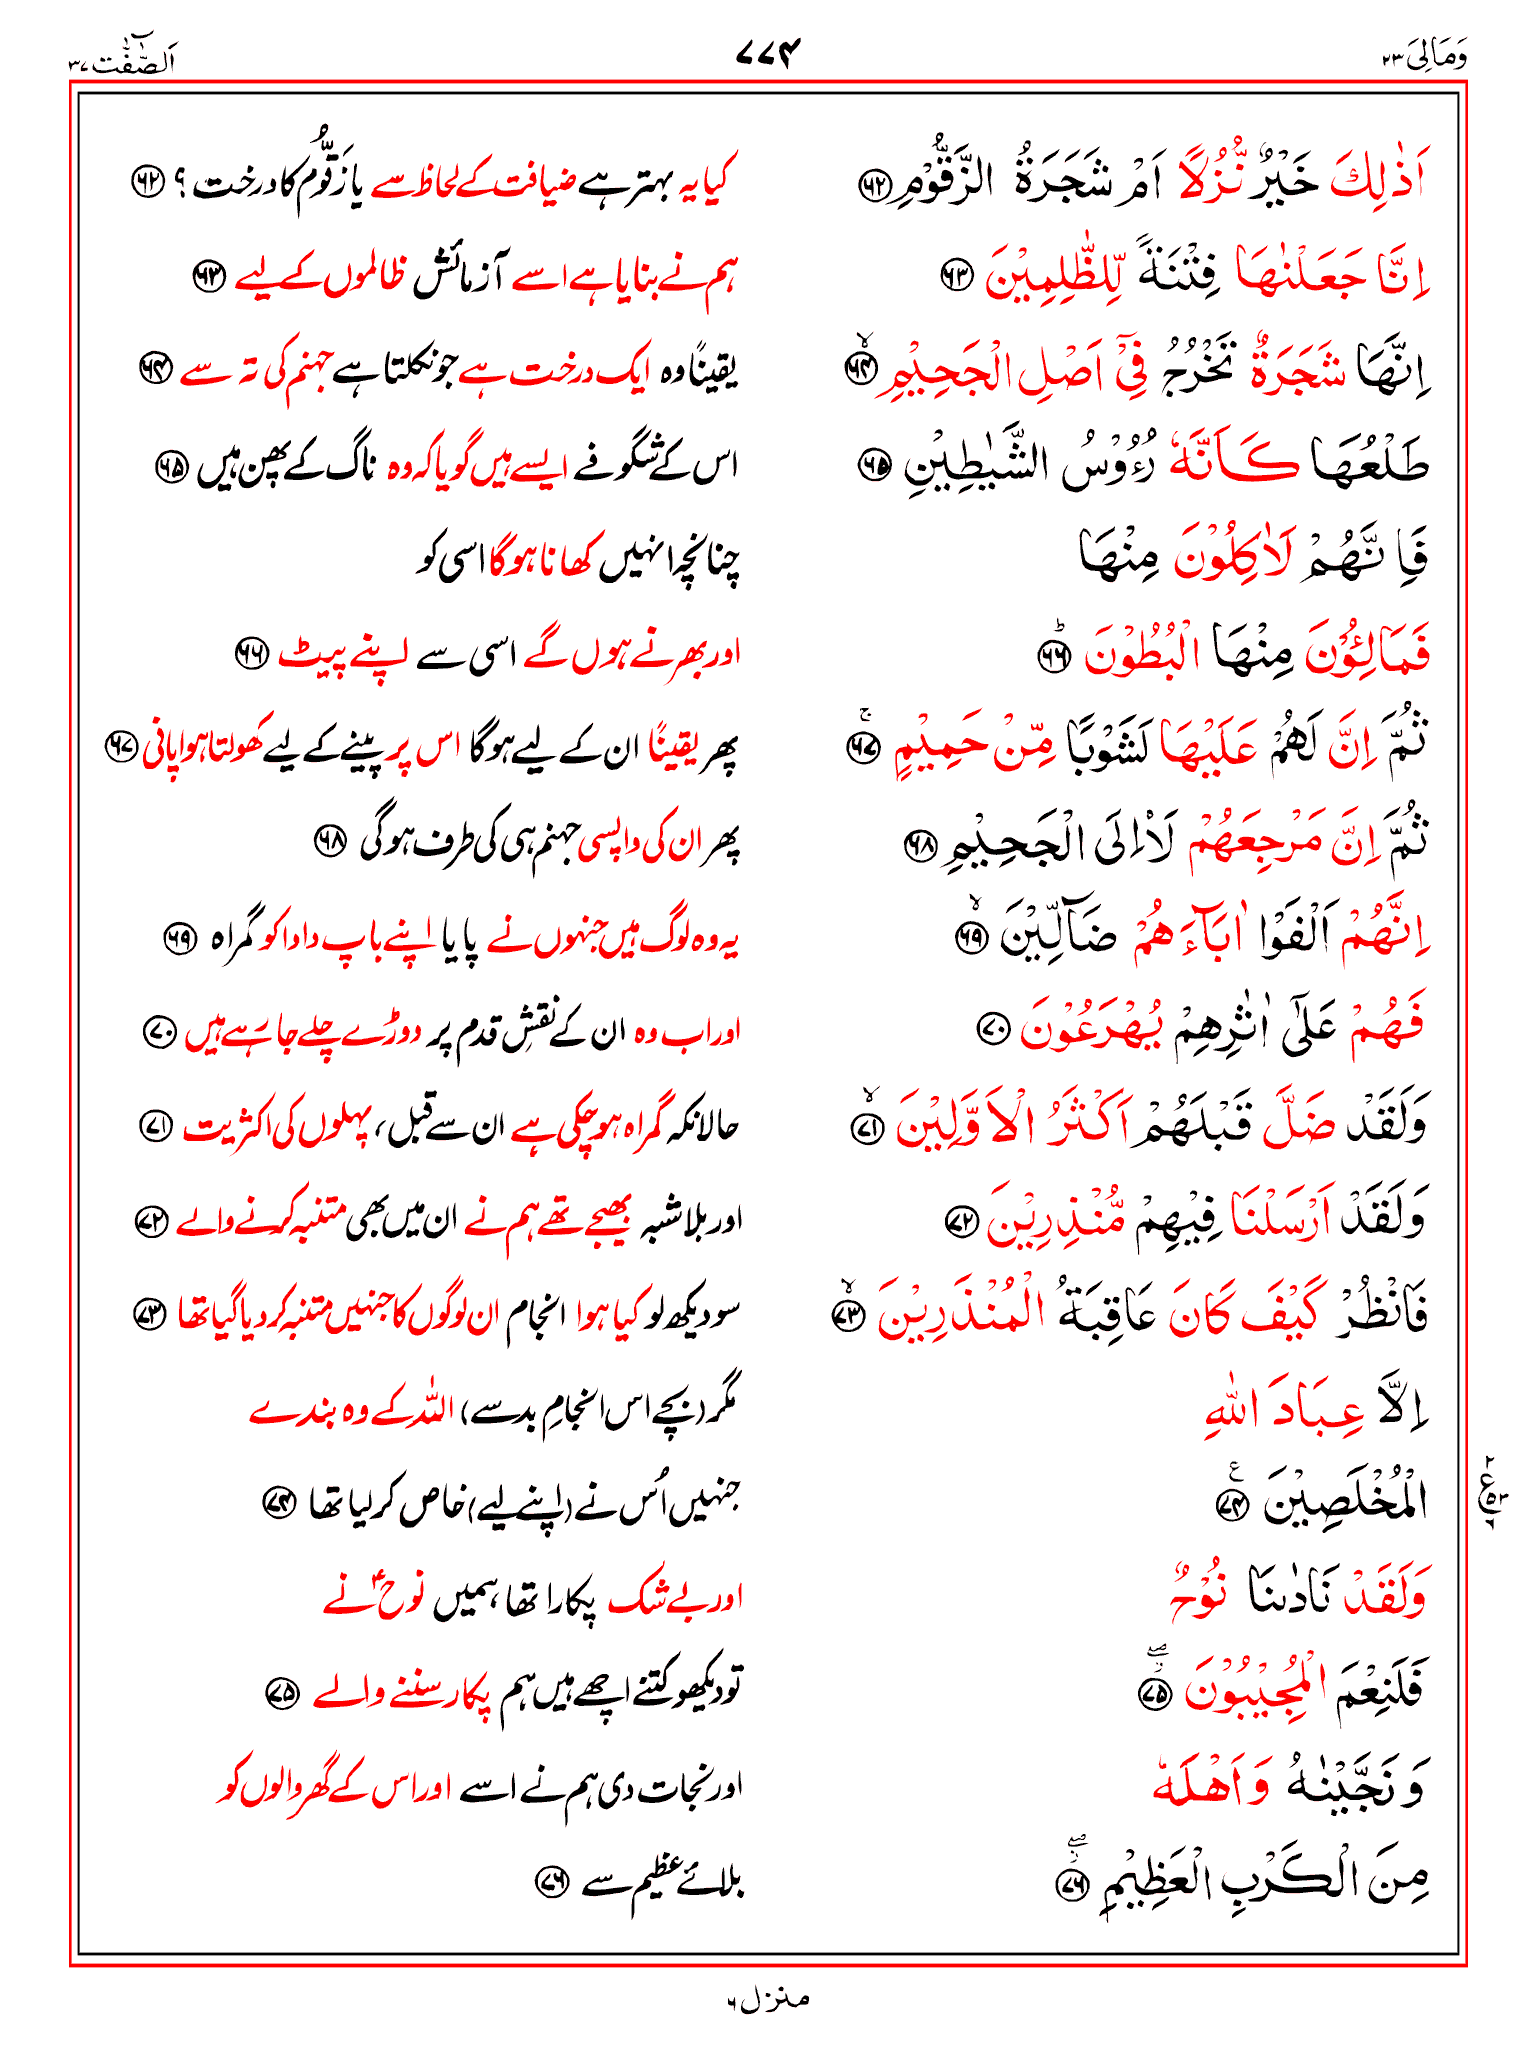 وَمَالِیَ ۲۳ ۷۷۴ اَلصّٰٓفّٰت ۳۷
اَذٰلِكَ خَیْرٌ نُّزُلًا اَمْ شَجَرَةُ الزَّقُّوْمِ ﴿۶۲﴾ کیا یہ بہتر ہے ضیافت کے لحاظ سے یا زَقُّوم کا درخت ؟ ﴿۶۲﴾
اِنَّا جَعَلْنٰهَا فِتْنَةً لِّلظّٰلِمِیْنَ ﴿۶۳﴾ ہم نے بنایا ہے اسے آزمائش ظالموں کے لیے ﴿۶۳﴾
اِنَّهَا شَجَرَةٌ تَخْرُجُ فِیْۤ اَصْلِ الْجَحِیْمِ ﴿۶۴﴾ۙ یقیناً وہ ایک درخت ہے جو نکلتا ہے جہنم کی تہ سے ﴿۶۴﴾
طَلْعُهَا كَاَنَّهٗ رُءُوْسُ الشَّیٰطِیْنِ ﴿۶۵﴾ اس کے شگوفے ایسے ہیں گویا کہ وہ ناگ کے پھن ہیں ﴿۶۵﴾
فَاِنَّهُمْ لَاٰكِلُوْنَ مِنْهَا چنانچہ انہیں کھانا ہوگا اسی کو
فَمَالِـُٔوْنَ مِنْهَا الْبُطُوْنَ ﴿۶۶﴾ؕ اور بھرنے ہوں گے اسی سے اپنے پیٹ ﴿۶۶﴾
ثُمَّ اِنَّ لَهُمْ عَلَیْهَا لَشَوْبًا مِّنْ حَمِیْمٍ ﴿۶۷﴾ۚ پھر یقیناً ان کے لیے ہوگا اس پر پینے کے لیے کھولتا ہوا پانی ﴿۶۷﴾
ثُمَّ اِنَّ مَرْجِعَهُمْ لَاۡاِلَی الْجَحِیْمِ ﴿۶۸﴾ پھر ان کی واپسی جہنم ہی کی طرف ہوگی ﴿۶۸﴾
اِنَّهُمْ اَلْفَوْا اٰبَآءَهُمْ ضَآلِّیْنَ ﴿۶۹﴾ۙ یہ وہ لوگ ہیں جنہوں نے پایا اپنے باپ دادا کو گمراہ ﴿۶۹﴾
فَهُمْ عَلٰۤی اٰثٰرِهِمْ یُهْرَعُوْنَ ﴿۷۰﴾ اور اب وہ ان کے نقشِ قدم پر دوڑے چلے جا رہے ہیں ﴿۷۰﴾
وَلَقَدْ ضَلَّ قَبْلَهُمْ اَكْثَرُ الْاَوَّلِیْنَ ﴿۷۱﴾ۙ حالانکہ گمراہ ہو چکی ہے ان سے قبل، پہلوں کی اکثریت ﴿۷۱﴾
وَلَقَدْ اَرْسَلْنَا فِیْهِمْ مُّنْذِرِیْنَ ﴿۷۲﴾ اور بلاشبہ بھیجے تھے ہم نے ان میں بھی متنبہ کرنے والے ﴿۷۲﴾
فَانْظُرْ كَیْفَ كَانَ عَاقِبَةُ الْمُنْذَرِیْنَ ﴿۷۳﴾ۙ سو دیکھ لو کیا ہوا انجام ان لوگوں کا جنہیں متنبہ کر دیا گیا تھا ﴿۷۳﴾
اِلَّا عِبَادَ اللّٰهِ مگر (بچے اس انجامِ بد سے) اللہ کے وہ بندے
الْمُخْلَصِیْنَ ﴿۷۴﴾۠ جنہیں اُس نے (اپنے لیے) خاص کر لیا تھا ﴿۷۴﴾
وَلَقَدْ نَادٰىنَا نُوْحٌ اور بے شک پکارا تھا ہمیں نوحؑ نے
فَلَنِعْمَ الْمُجِیْبُوْنَ ﴿۷۵﴾ؗۖ تو دیکھو کتنے اچھے ہیں ہم پکار سننے والے ﴿۷۵﴾
وَنَجَّیْنٰهُ وَاَهْلَهٗ اور نجات دی ہم نے اسے اور اس کے گھر والوں کو
مِنَ الْكَرْبِ الْعَظِیْمِ ﴿۷۶﴾ؗۖ بلائے عظیم سے ﴿۷۶﴾
منزل ۶